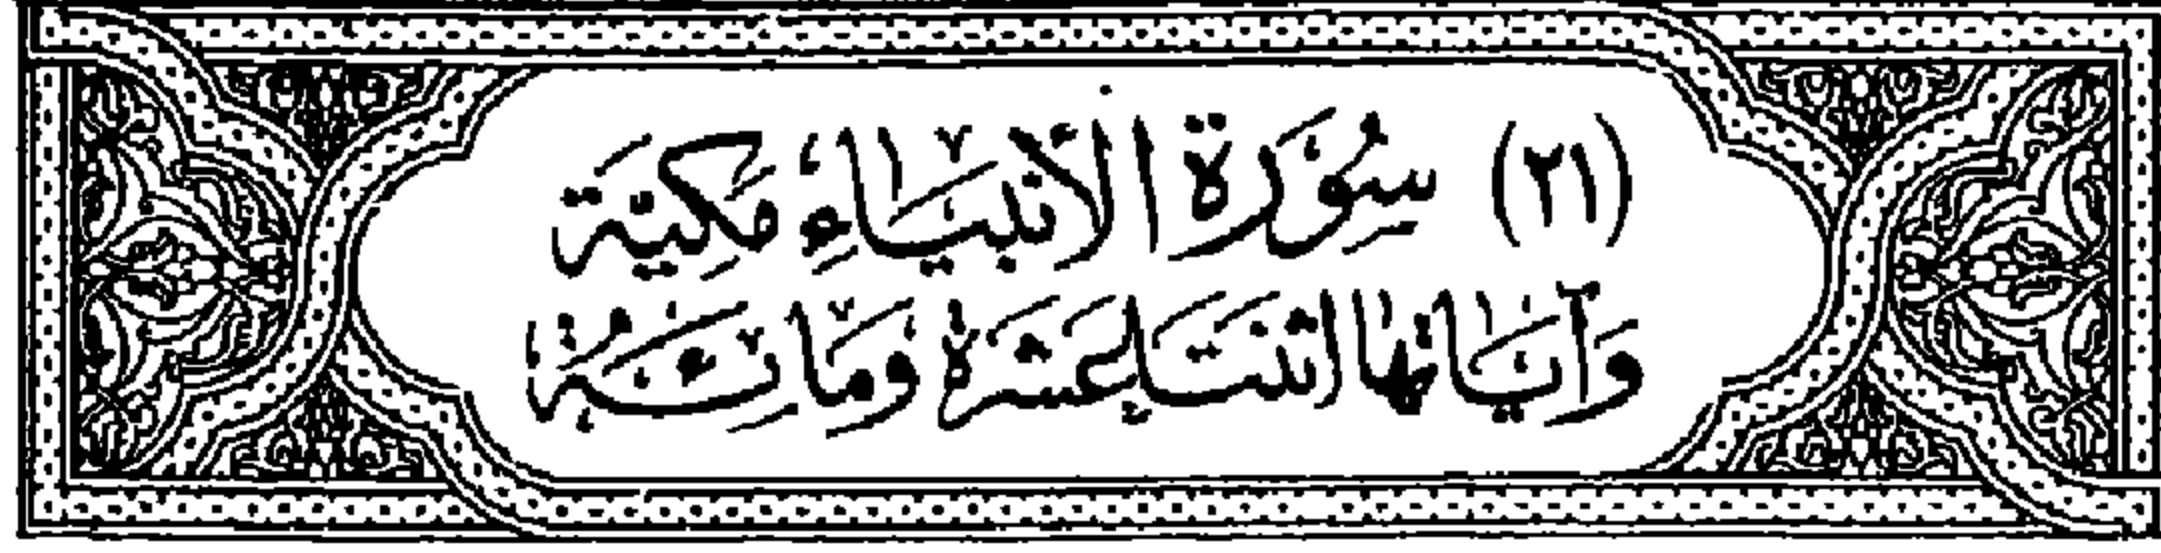 (٢١) سُورَة الأنبيَاءِ مَكِيَّة
وَآيَاتهَا اثنتَا عَشَرة وَمِائة